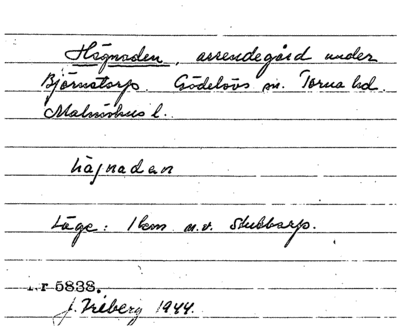 Hägnaden, arrendegård under
Björnstorp. Gödelövs sn. Torna hd.
Malmöhus l.
hägnadan
Läge: 1 km n.v. Stubbarp.
5838.
J. Friberg 1944.